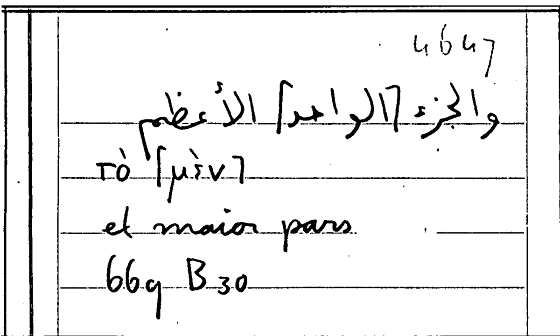 4647
والجزء [الواحد] الأعظم
τὸ [μὲν]
et maior pars
669 B 30